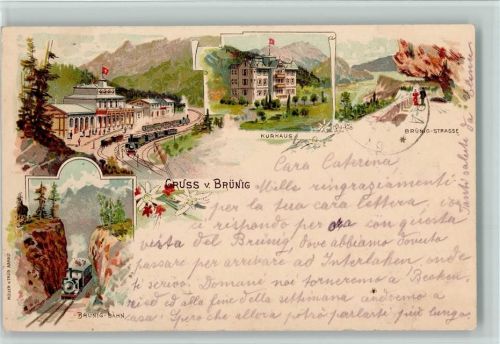 KURHAUS
BRÜNIG-STRASSE
GRUSS v. BRÜNIG
BRÜNIG-BAHN
Cara Caterina
Mille ringraziamenti
per la tua cara lettera, io
ti rispondo per ora con questa
vista del Brünig, dove abbiamo dovuto
passare per arrivare ad Interlaken, onde
ti scrivo. Domani noi torneremo a Becken
ried ed alla fine della settimana andremo a
casa. Spero che allora potrò parlarti più lunga.
Tanti saluti da